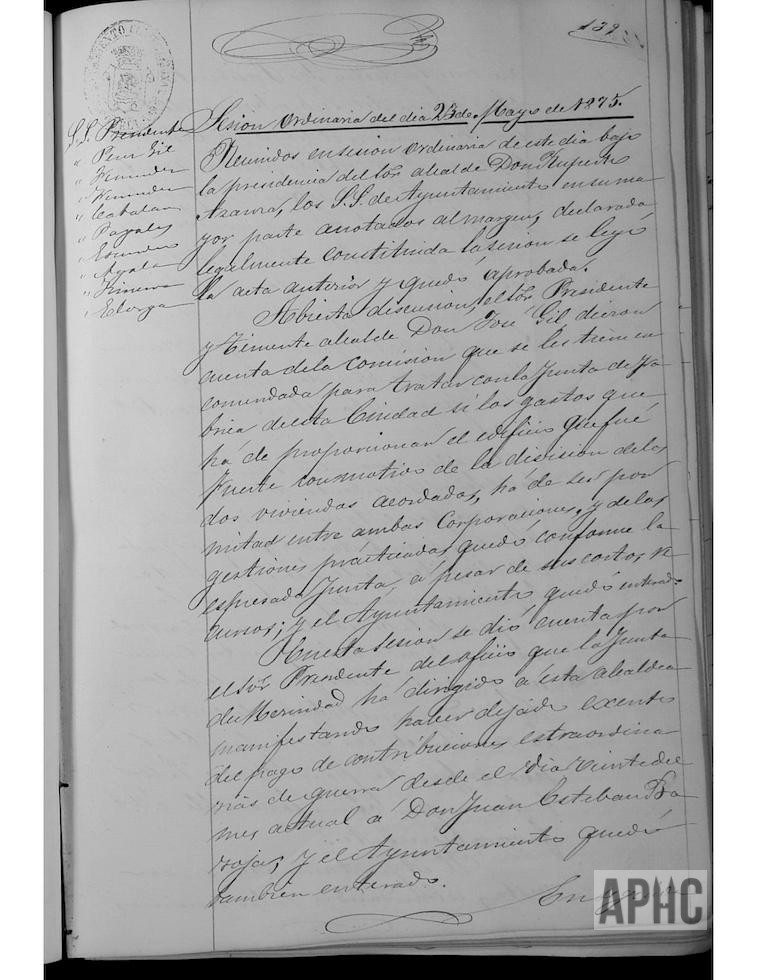 139
Sesion Ordinaria del dia 23 de Mayo de 1875.
S.S. Presidente
" Peru Gil
" Fernandez
" Fernandez
" Catalan
" Ayala
Reunidos en sesion ordinaria de este dia bajo
la presidencia del Sor. alcalde Don Ruperto
Azanza, los S.S. de Ayuntamiento en su ma
yor parte anotados al margen, declarada
legalmente constituida la sesion se leyó
la acta anterior y quedó aprobada.
Abierta discusion, el Sor. Presidente
y Teniente alcalde Don José Gil dieron
cuenta de la comision que se les tiene en
comendada para tratar con la Junta de Fá
brica de esta Ciudad si los gastos que
há de proporcionar el edificio que fué
Fuerte con motivo de la division de las
dos viviendas acordadas, há de ser por
mitad entre ambas Corporaciones, y de las
gestiones practicadas quedó conforme la
espresada Junta, á pesar de sus cortos re
cursos; y el Ayuntamiento quedó enterado.
En esta sesion se dió cuenta por
el Sor. Presidente del oficio que la Junta
de Merindad há dirigido á esta alcaldia
manifestando haber dejado exento
del pago de contribuciones estraordina
rias de guerra desde el dia veinte del
mes actual á Don Juan Esteban Ba
rojas, y el Ayuntamiento quedó
tambien enterado.
APHC